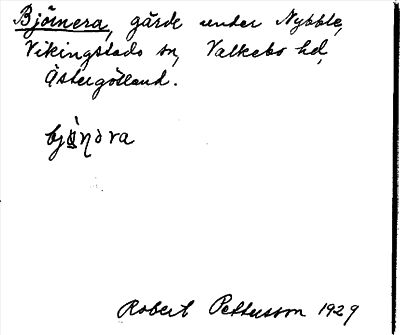 Björnera, gärde under Nybble,
Vikingstads sn, Valkebo hd,
Östergötland.
Robert Pettersson 1929